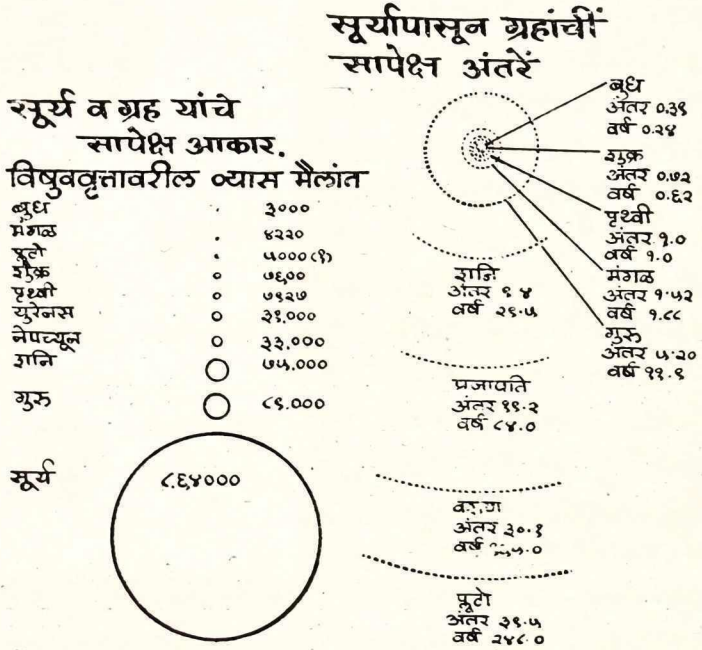 सूर्यापासून ग्रहांचीं
सापेक्ष अंतरें
सूर्य व ग्रह यांचे
सापेक्ष आकार.
विषुववृत्तावरील व्यास मैलांत
बुध ३०००
मंगळ ४२२०
प्लूटो ५०००(१)
शुक्र ७६,००
पृथ्वी ७९२७
युरेनस ३१,०००
नेपच्यून ३३,०००
शनि ७५,०००
गुरु ८९.०००
सूर्य ८६४०००
बुध
अंतर ०.३९
वर्ष ०.२४
शुक्र
अंतर ०.७२
वर्ष ०.६२
पृथ्वी
अंतर १.०
वर्ष १.०
मंगळ
अंतर १.५२
वर्ष १.८८
गुरु
अंतर ५.२०
वर्ष ११.९
शनि
अंतर ९.४
वर्ष २९.५
प्रजापति
अंतर १९.२
वर्ष ८४.०
वरुण
अंतर ३०.१
वर्ष
प्लूटो
अंतर ३९.५
वर्ष २४८.०